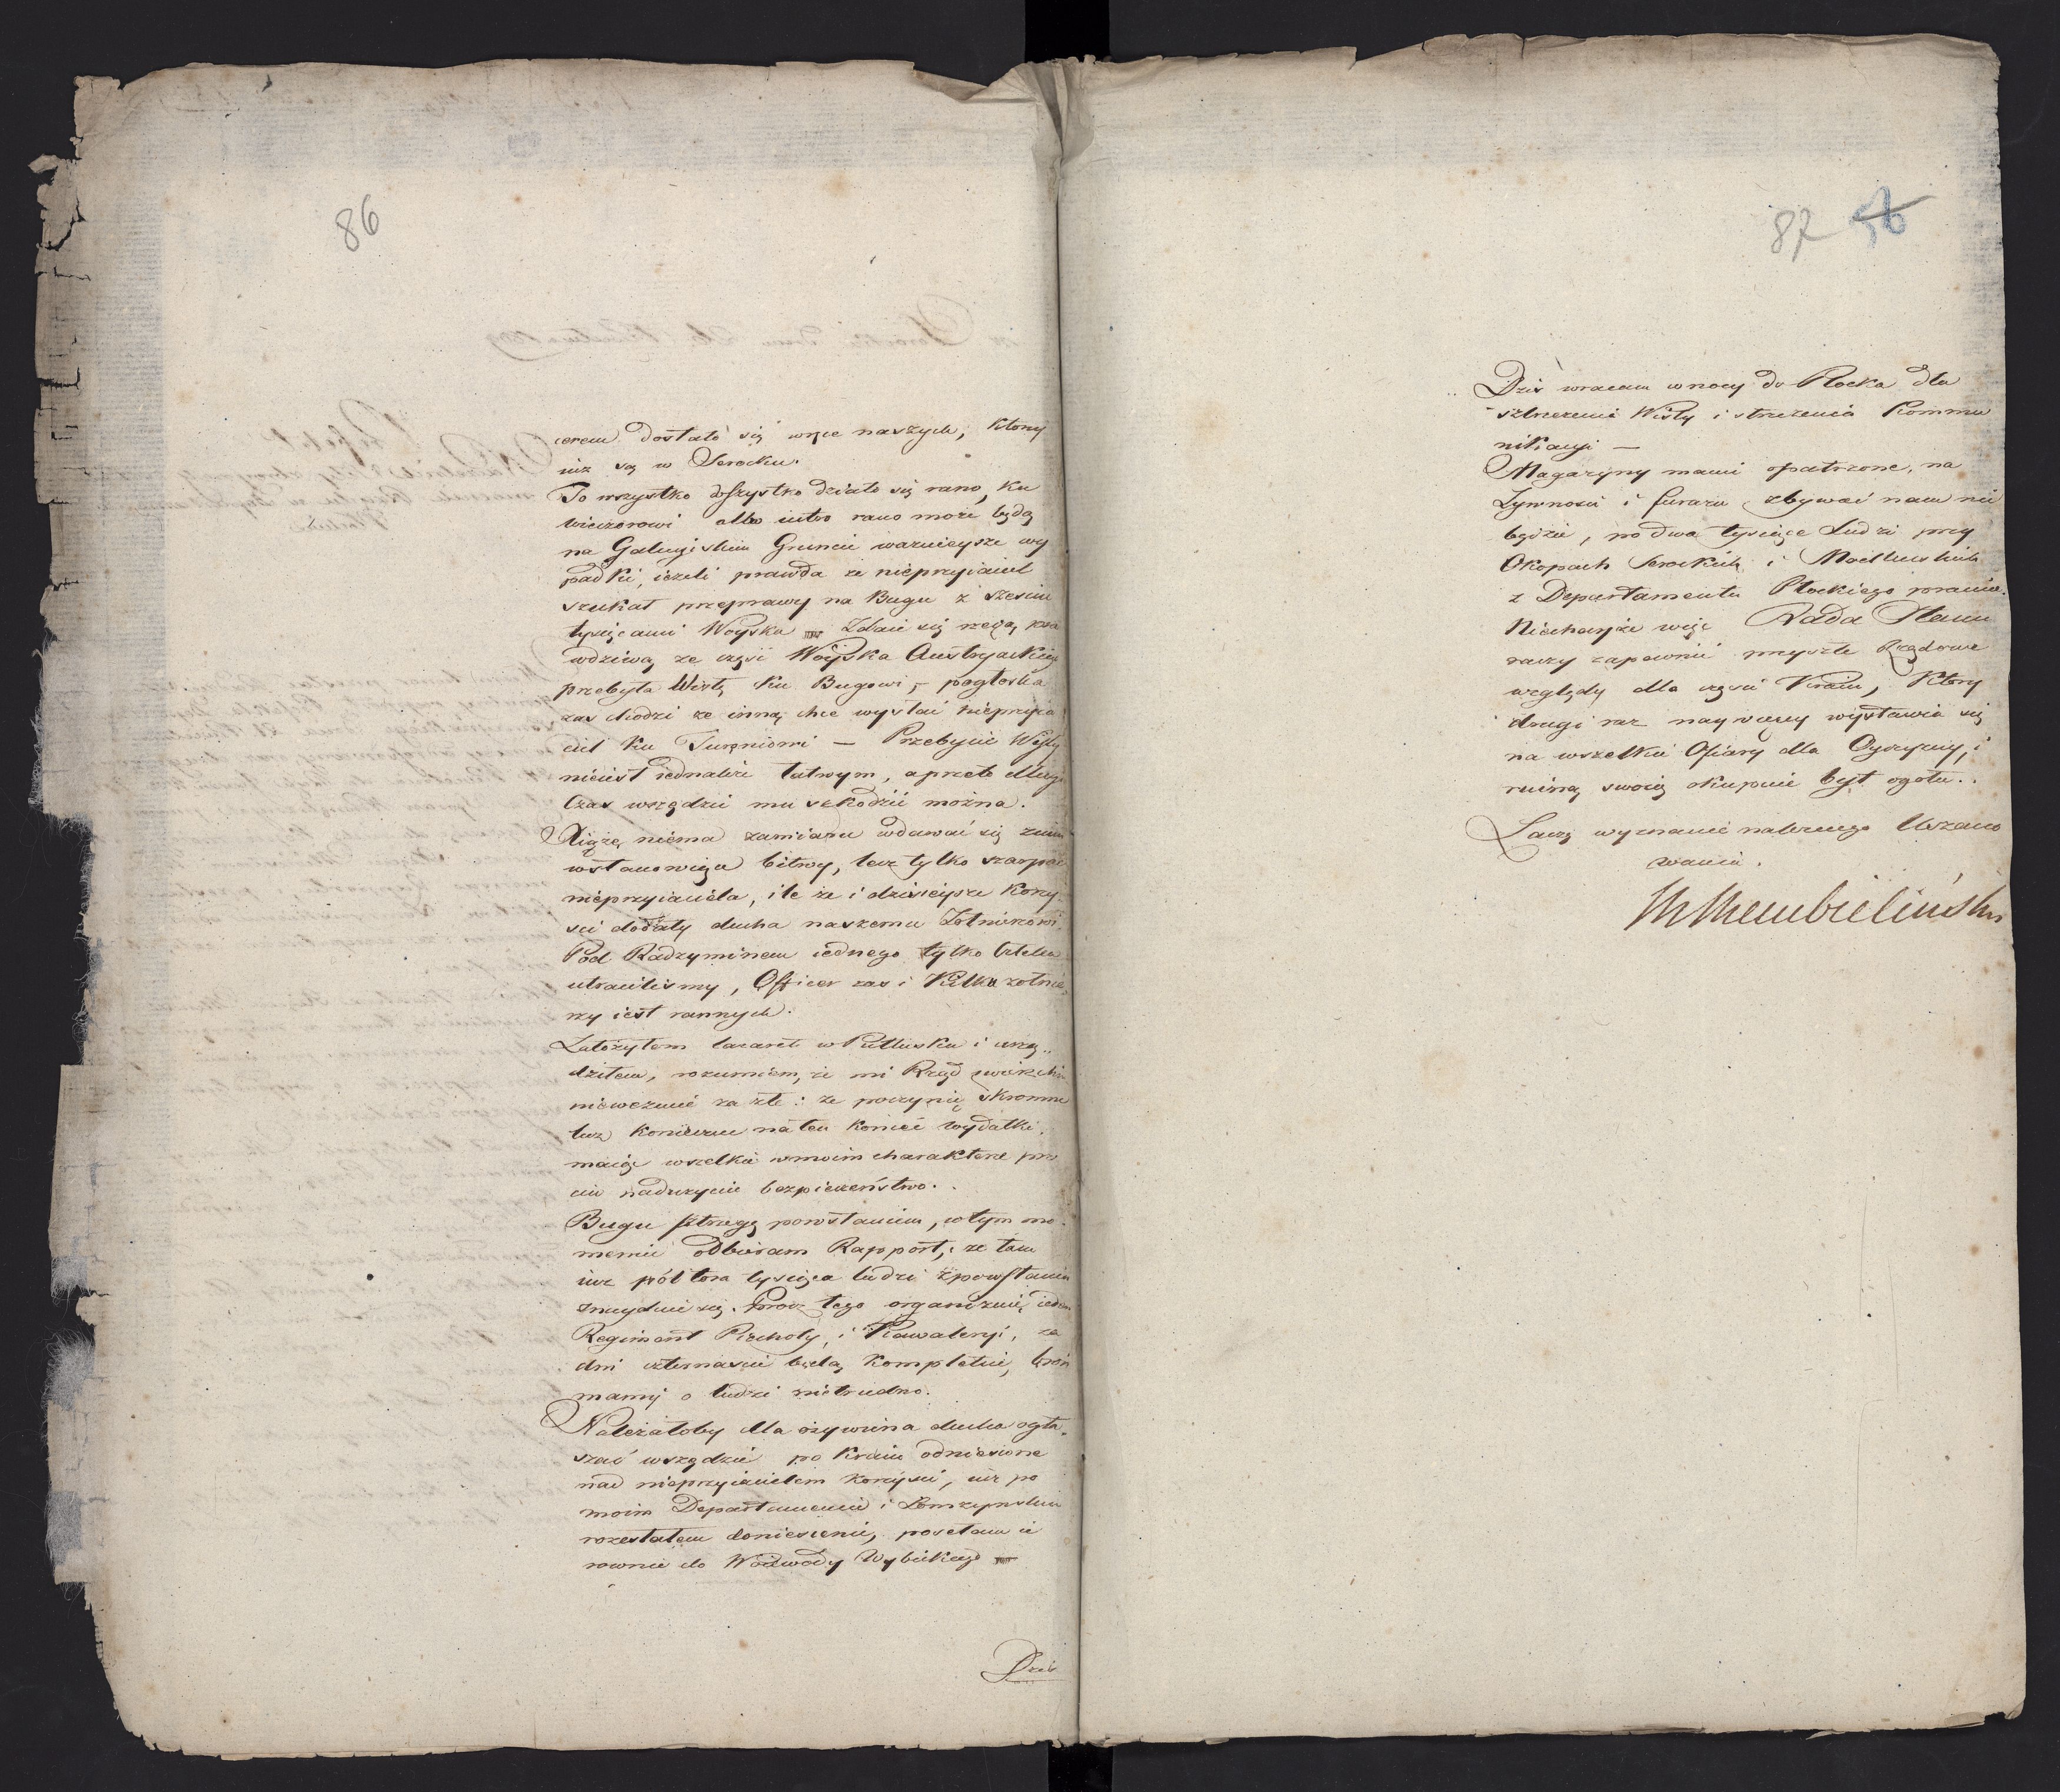 86
cerem dostało się wręce naszych, ktorzy
iuż są w Serocku.
To wszystko działo się rano, ku
wieczorowi albo iutro rano może będą
na Galicyiskim Gruncie ważnieysze wy
padki, ieżeli prawda że nieprzyiaciel
szukał przeprawy na Bugu z sześciu
tysiącami Woyska Zdaie się rzeczą pra
wdziwą że część Woyska Austryackiego
przebyła Wisłę ku Bugowi, pogłoska
zas chodzi że inną chce wysłać nieprzyia
ciel ku Toruniowi — Przebycie Wisły
nieiest iednakże łatwym, a przeto długi
Czas wszędzie mu szkodzić można.
Xiążę niema zamiaru wdawać się
wstanowiącą bitwy, lecz tylko szarpać
nieprzyiaciela, ile że i dzisieysze korzy
sci dodały ducha naszemu Żołnierzowi.
Pod Radzyminem iednego tylko
utraciliśmy, Officer zas i Kilku żołnie
rzy iest rannych.
Założyłem lazaret w Pułtusku i urzą
dziłem, rozumiem, że mi Rząd
niewezmie za złe: że poczynię skromne
lecz konieczne na ten koniec wydatki,
maiąc wszelkie wmoim charakterze prze
ciw nadużyciu bezpieczeństwo.
Bugu strzegą powstaniem, wtym mo
mencie odbieram Rapport, że tam
iuż półtora tysiąca ludzi zpowstania
znayduie się. Prócz tego organizuię ieden
Regiment Piechoty, i Kawaleryi, za
dni czternascie będą kompletne, broń
mamy o ludzi nietrudno.
Należałoby dla ożywienia ducha ogła
szać wszędzie po Kraiu odniesione
nad nieprzyiacielem korzyści, iuż po
moim Departamencie i Łomżyńskim
rozesłałem doniesienie, posełam ie
rownie do Woiewody Wybickiego
Dziś
87 56
Dziś wracam wnocy do Płocka dla
strzeżenia Wisły i strzeżenia Kommu
nikacyi —
Magazyny mamy opatrzone, na
Żywności i furażu zbywać nam nie
będzie, po dwa tysiące Ludzi przy
Okopach Serockich i Modlinskich
z Departamentu Płockiego pracuie.
Niechayże więc Rada Stanu
raczy zapewnić przyszłe Rządowe
względy dla części Kraiu, Ktory
drugi raz naywięcey wystawia się
na wszelkie Ofiary dla Oyczyzny, i
ruiną swoią okupuie byt ogółu.
Łączę wyznanie należnego Uszano
wania.
Rembielinski